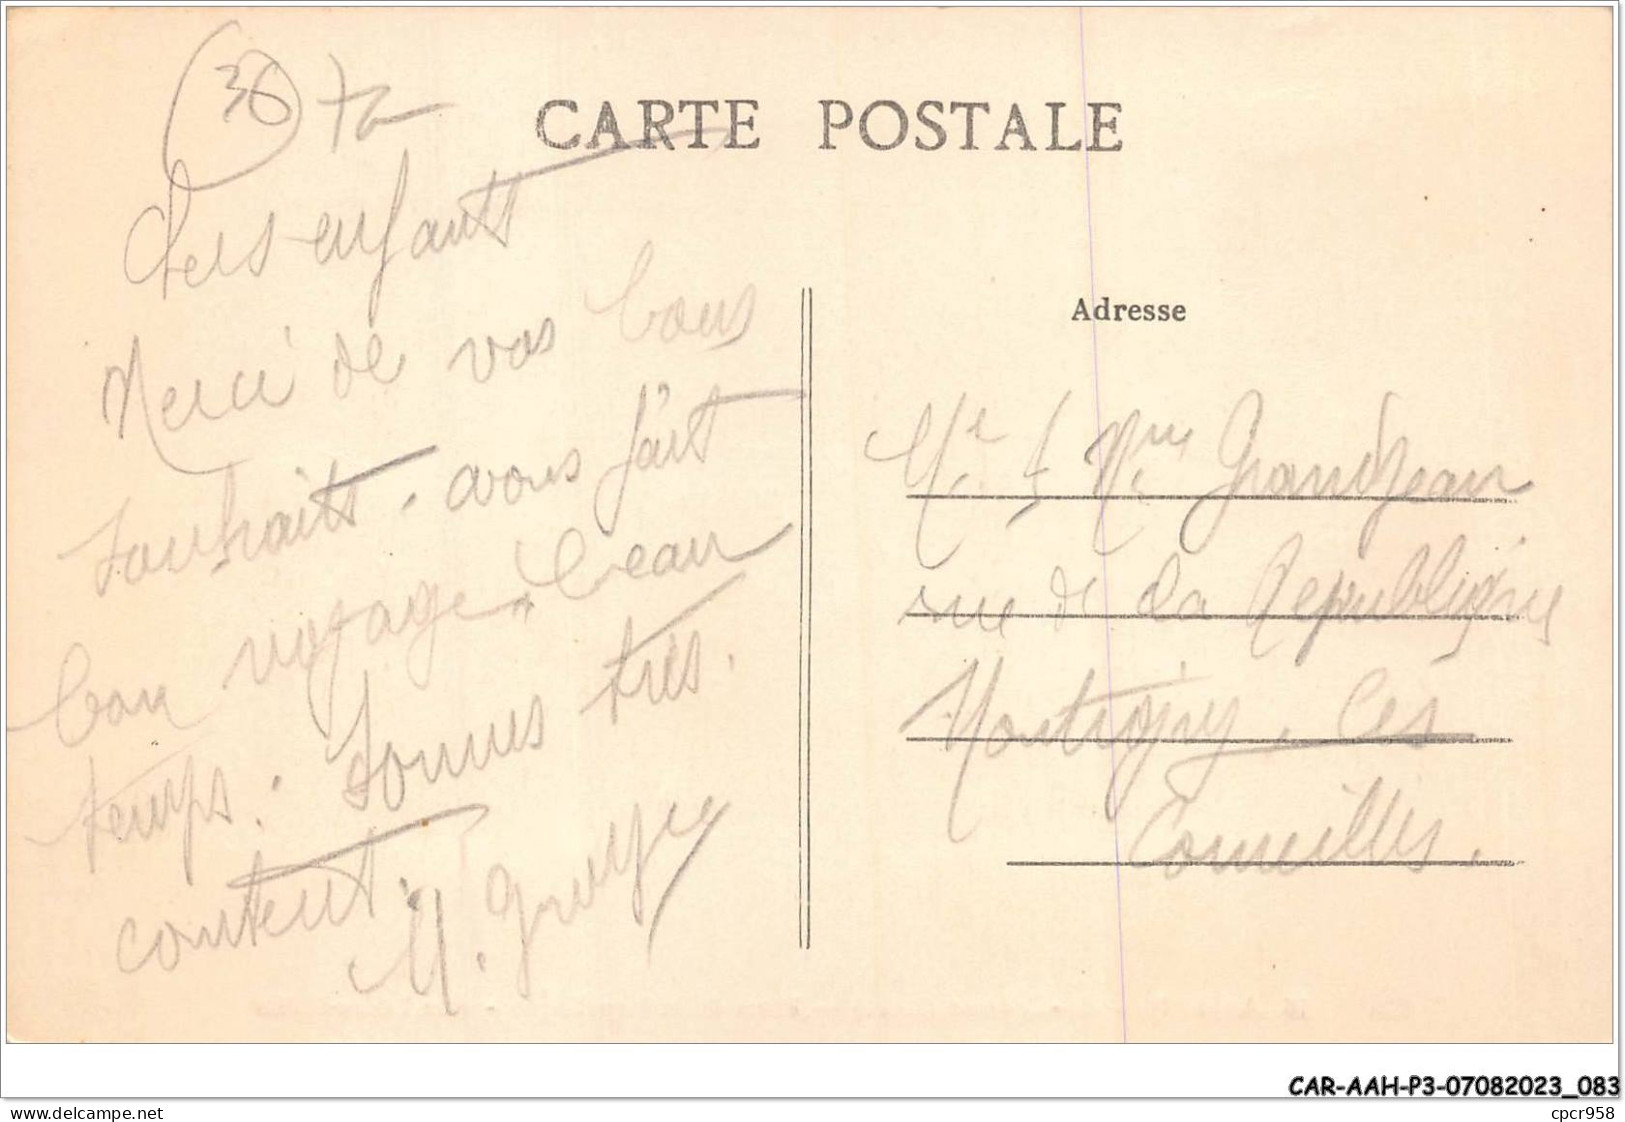 36
CARTE POSTALE
Chers enfants
Merci de vos bons
souhaits. avons fait
bon voyage, beau
temps. sommes très.
content.
Adresse
Mr & Mme Grandjean
rue de la République
Montigny. les
Cormeilles.
CAR-AAH-P3-07082023_083
delcampe.net
cpcr958